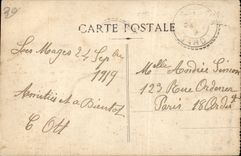 CARTE POSTALE
Les Mages 21 Sepbre
1919
Amitiés et a Bientot
C Ott
Melle Andrée Simon
123 Rue Ordener
Paris 18e Ardt